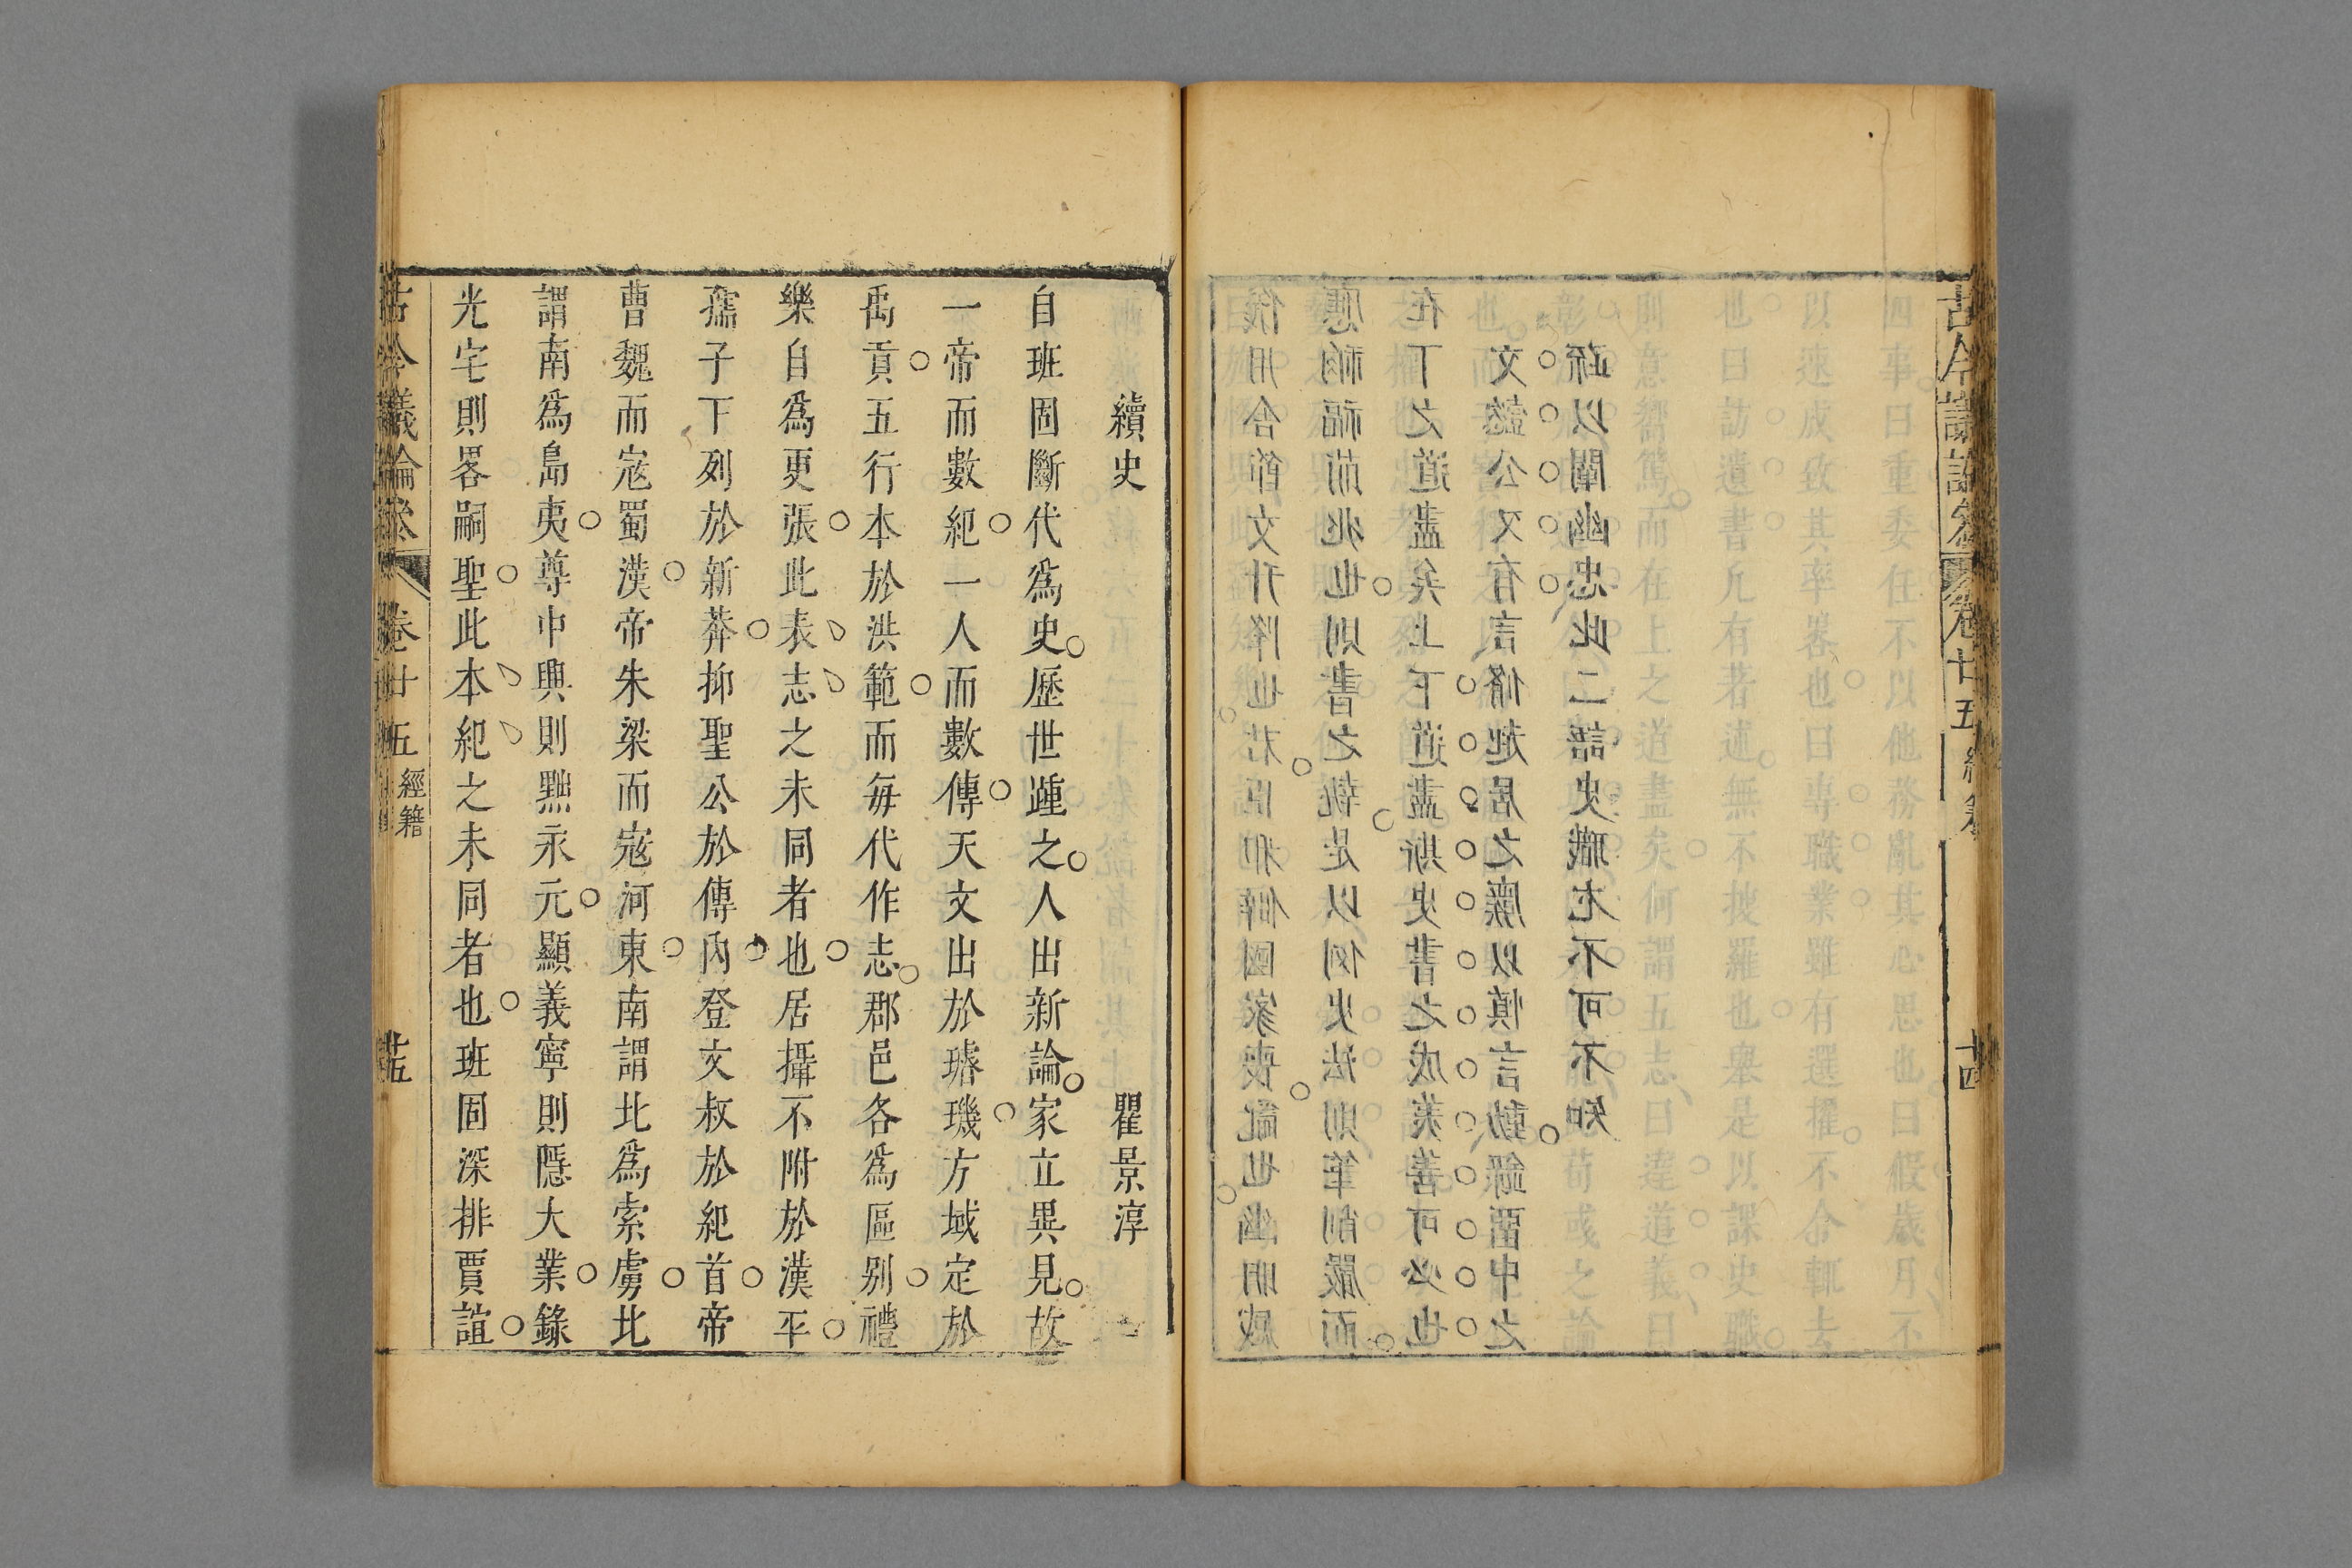 古今議論參
卷廿五
經籍
十四
四事曰重委任不以他務亂其心思也曰假歲月不
以速成致其率畧也曰專職業雖有選擢不令輒去
也曰訪遺書凡有著述無不搜羅也舉是以課史職
則意嚮篤而在上之道盡矣何謂五志曰達道義曰
儀用舍節文升降也若臣邪僻國家喪亂也幽明感
應禍福萌兆也則書之執是以例史法則筆削嚴而
在下之道盡矣上下道盡斯史書之成美善可必也
文懿公又有言脩起居之廢以慎言動錄畱中之
疏以闡幽忠此二語史職尤不可不知
續史
瞿景淳
自班固斷代爲史歷世踵之人出新論家立異見故
一帝而數紀一人而數傳天文出於璿璣方域定於
禹貢五行本於洪範而每代作志郡邑各爲區别禮
樂自爲更張此表志之未同者也居攝不附於漢平
孺子下列於新莽抑聖公於傳內登文叔於紀首帝
曹魏而寇蜀漢帝朱梁而寇河東南謂北爲索虜北
謂南爲島夷尊中興則黜永元顯義寧則隱大業錄
光宅則畧嗣聖此本紀之未同者也班固深排賈誼
古今議論參
卷廿五
經籍
十五